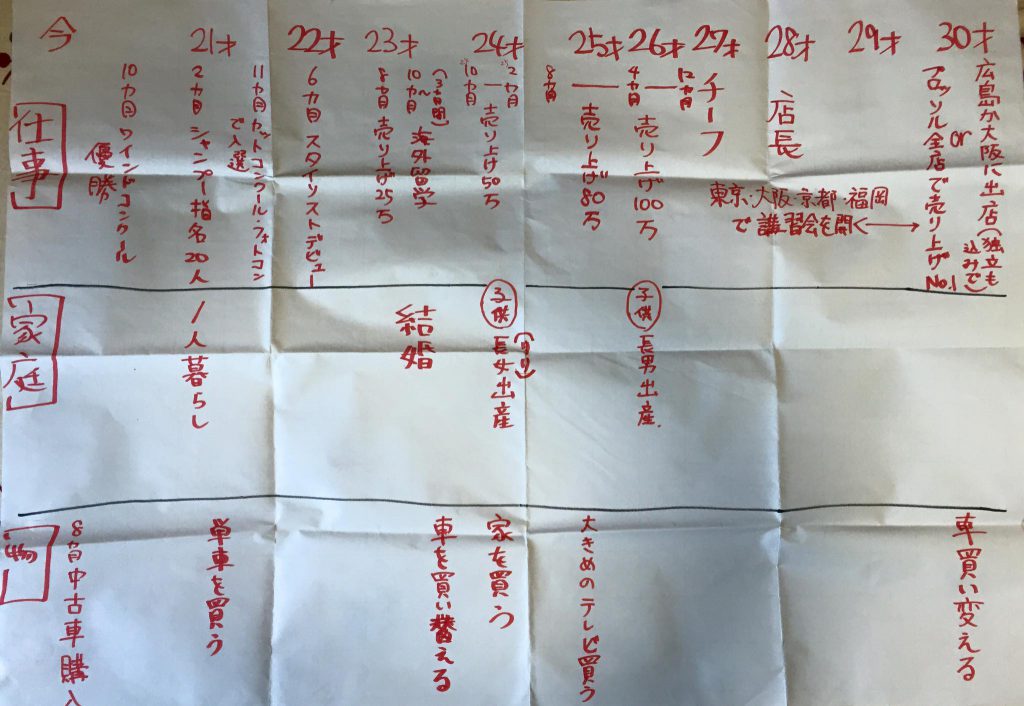 今
21才
22才
23才
24才
25才
26才
27才
28才
29才
30才
仕事
10カ月ワインドコンクール
優勝
2カ月シャンプー指名20人
11カ月カットコンクール・フォトコン
で入選
6カ月スタイリストデビュー
8カ月売り上げ25万
10〜カ月海外留学
(3カ月間)
10カ月―2カ月
売り上げ50万
8カ月
売り上げ80万
4カ月
売り上げ100万
12カ月
チーフ
店長
東京・大阪・京都・福岡
で講習会を開く
広島か大阪に出店(独立も込みで)
or
全店で売り上げNo.1
家庭
1人暮らし
結婚
子供
長女出産
(リリ)
子供
長男出産.
物
8カ月中古車購入
単車を買う
車を買い替える
家を買う
大きめのテレビ買う
車買い変える